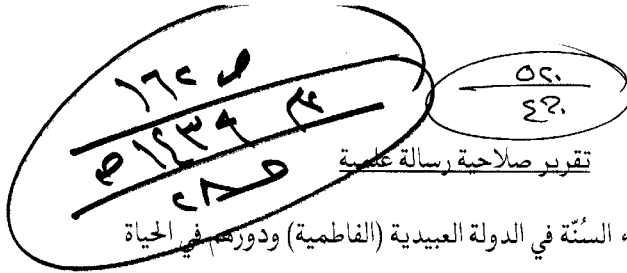 ٥٢٠
٤٢٠
ص ١٦٢
١٤٣٩ هـ
تقرير صلاحية رسالة علمية
السُنّة في الدولة العبيدية (الفاطمية) ودورهم في الحياة